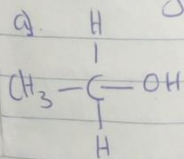 a).
H
CH₃ – C – OH
H